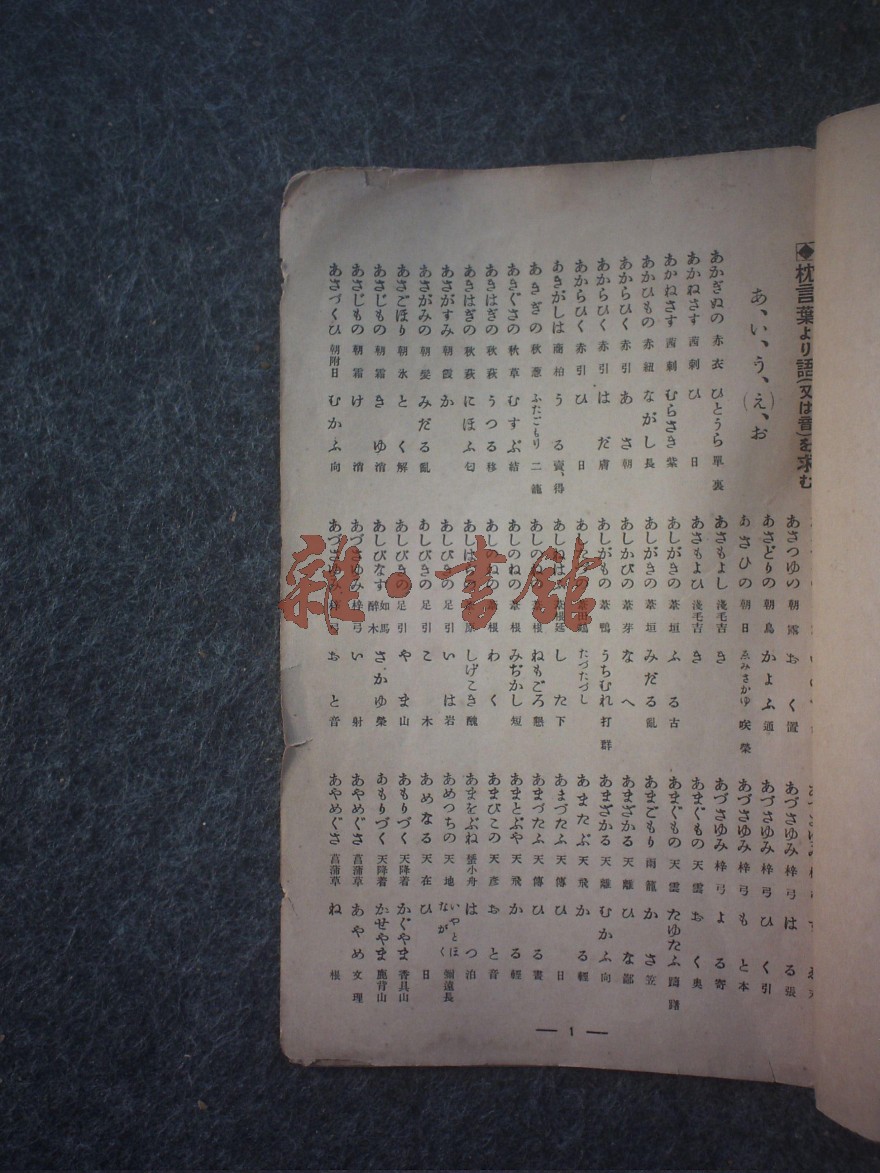 ◆枕言葉より語(又は音)を求む
あ、い、う、(え)、お
あかぎぬの 赤衣 ひとうら 單裏
あかねさす 茜刺 ひ 日
あかねさす 茜刺 むらさき 紫
あかひもの 赤紐 ながし 長
あからひく 赤引 あさ 朝
あからひく 赤引 はだ 膚
あからひく 赤引 ひ 日
あきがしは 商柏 うる 賣、得
あきぎの 秋葱 ふたごもり 二籠
あきぐさの 秋草 むすぶ 結
あきはぎの 秋萩 うつる 移
あきはぎの 秋萩 にほふ 匂
あさがすみ 朝霞 か
あさがみの 朝髪 みだる 亂
あさごほり 朝氷 とく 解
あさじもの 朝霜 きゆ 消
あさじもの 朝霜 け 消
あさづくひ 朝附日 むかふ 向
あさつゆの 朝露 おく 置
あさどりの 朝鳥 かよふ 通
あさひの 朝日 ゑみさかゆ 咲榮
あさもよし 淺毛吉 き
あさもよひ 淺毛吉 き
あしがきの 葦垣 ふる 古
あしがきの 葦垣 みだる 亂
あしかびの 葦芽 なへ
あしがもの 葦鴨 うちむれ 打群
たづたづし
あしねはふ した 下
あしのねの 根 ねもごろ 懇
あしのねの 葦根 みぢかし 短
あしのねの 葦根 わく
あしはらの 葦原 しげこき 醜
あしびきの 足引 いは 岩
あしびきの 足引 こ 木
あしびきの 足引 やま 山
あしびなす 如馬醉木 さかゆ 榮
あづさゆみ 梓弓 い 射
あづさゆみ 梓弓 おと 音
あづさゆみ 梓弓 はる 張
あづさゆみ 梓弓 ひく 引
あづさゆみ 梓弓 もと 本
あづさゆみ 梓弓 よる 寄
あまぐもの 天雲 おく 奥
あまぐもの 天雲 たゆたふ 躊躇
あまごもり 雨籠 かさ 笠
あまざかる 天離 ひな 鄙
あまざかる 天離 むかふ 向
あまたぶ 天飛 かる 輕
あまづたふ 天傳 ひ 日
あまづたふ 天傳 ひる 晝
あまとぶや 天飛 かる 輕
あまびこの 天彦 おと 音
あまをぶね 蜑小舟 はつ 泊
あめつちの 天地 いやとほながく 彌遠長
あめなる 天在 ひ 日
あもりづく 天降着 かぐやま 香具山
あもりづく 天降着 かせやま 鹿背山
あやめぐさ 菖蒲草 あやめ 文理
あやめぐさ 菖蒲草 ね 根
— 1 —
雜・書館